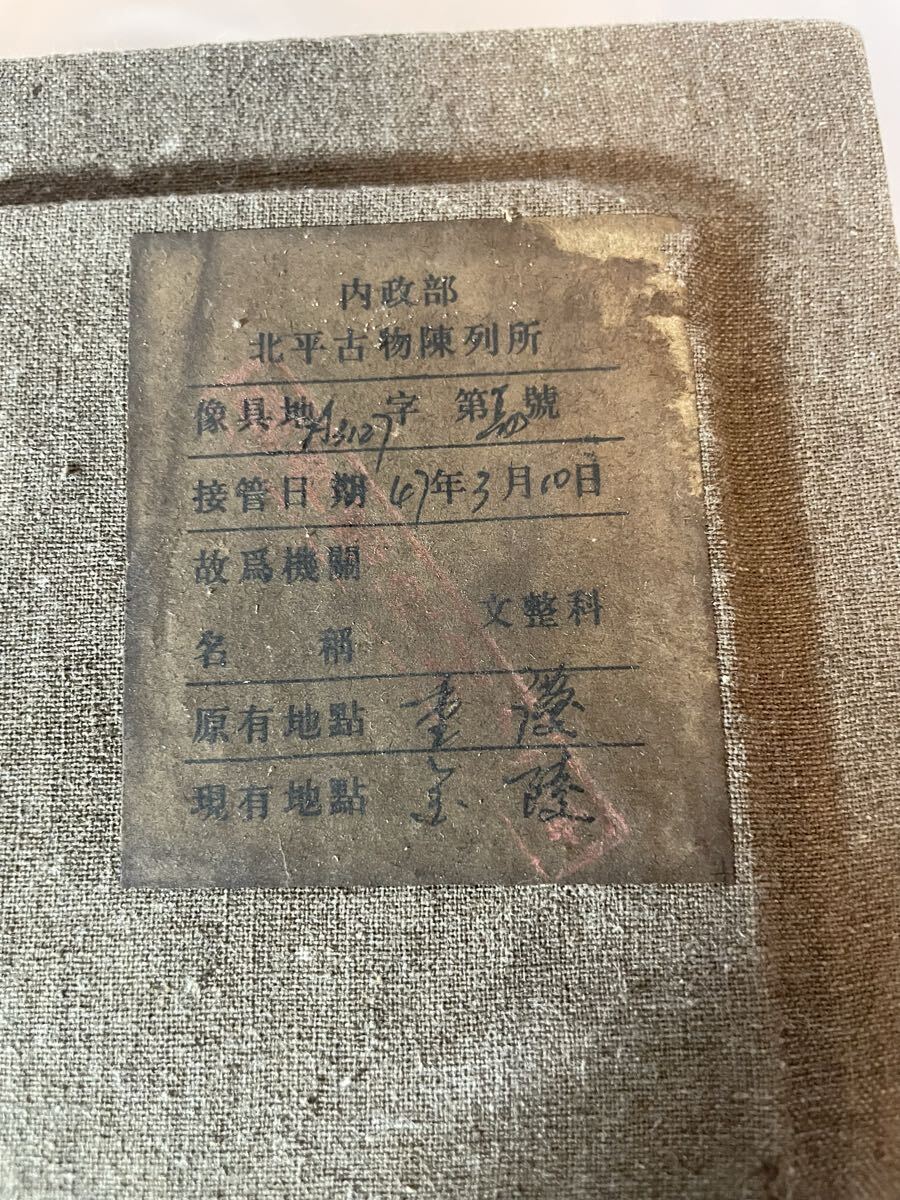 内政部
北平古物陳列所
像具地A3127字 第 號
接管日期 47年3月10日
故爲機關
文整科
名 稱
原有地點 重慶
現有地點 金陵